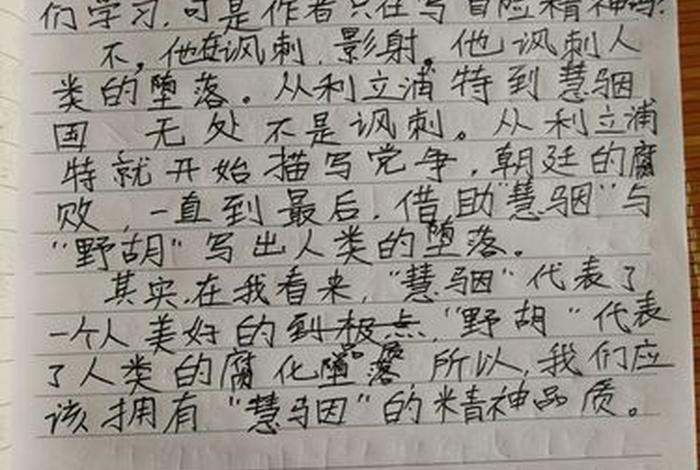 们学习,可是作者只在写冒险精神吗?
不,他在讽刺、影射。他讽刺人
类的堕落。从利立浦特到慧骃
国,无处不是讽刺。从利立浦
特就开始描写党争,朝廷的腐
败,一直到最后,借助"慧骃"与
"野胡"写出人类的堕落。
其实,在我看来,"慧骃"代表了
一个人美好的到极点,"野胡"代表
品质
了人类的腐化堕落,所以,我们应
该拥有"慧骃"的精神品质。